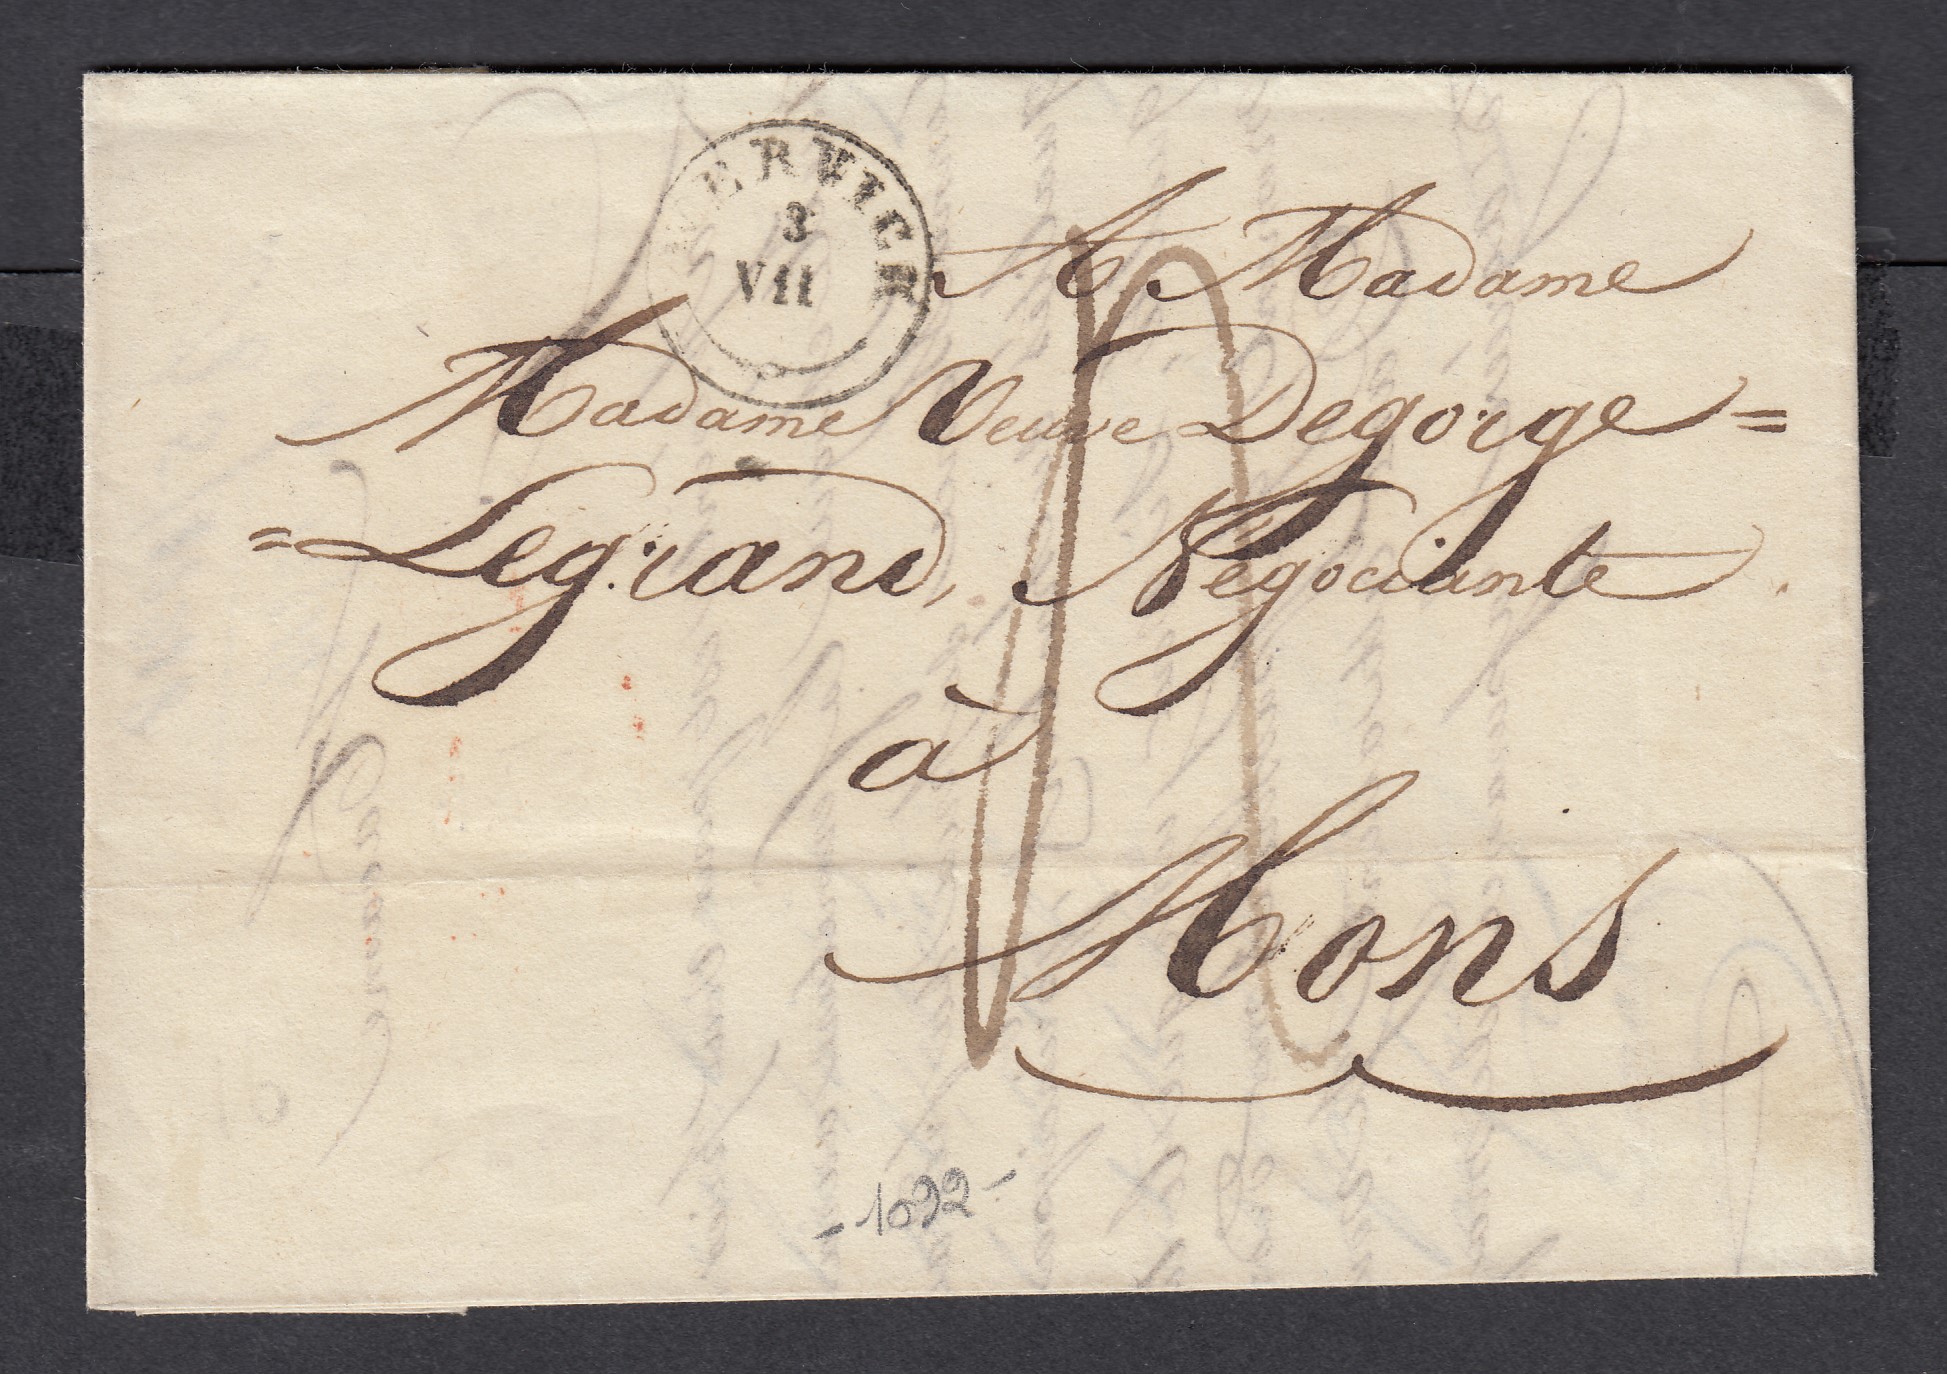 WERVICK
3
VII
A Madame
Madame Veuve Degorge=
=Legrand, Négociante
à
Mons
-1092-